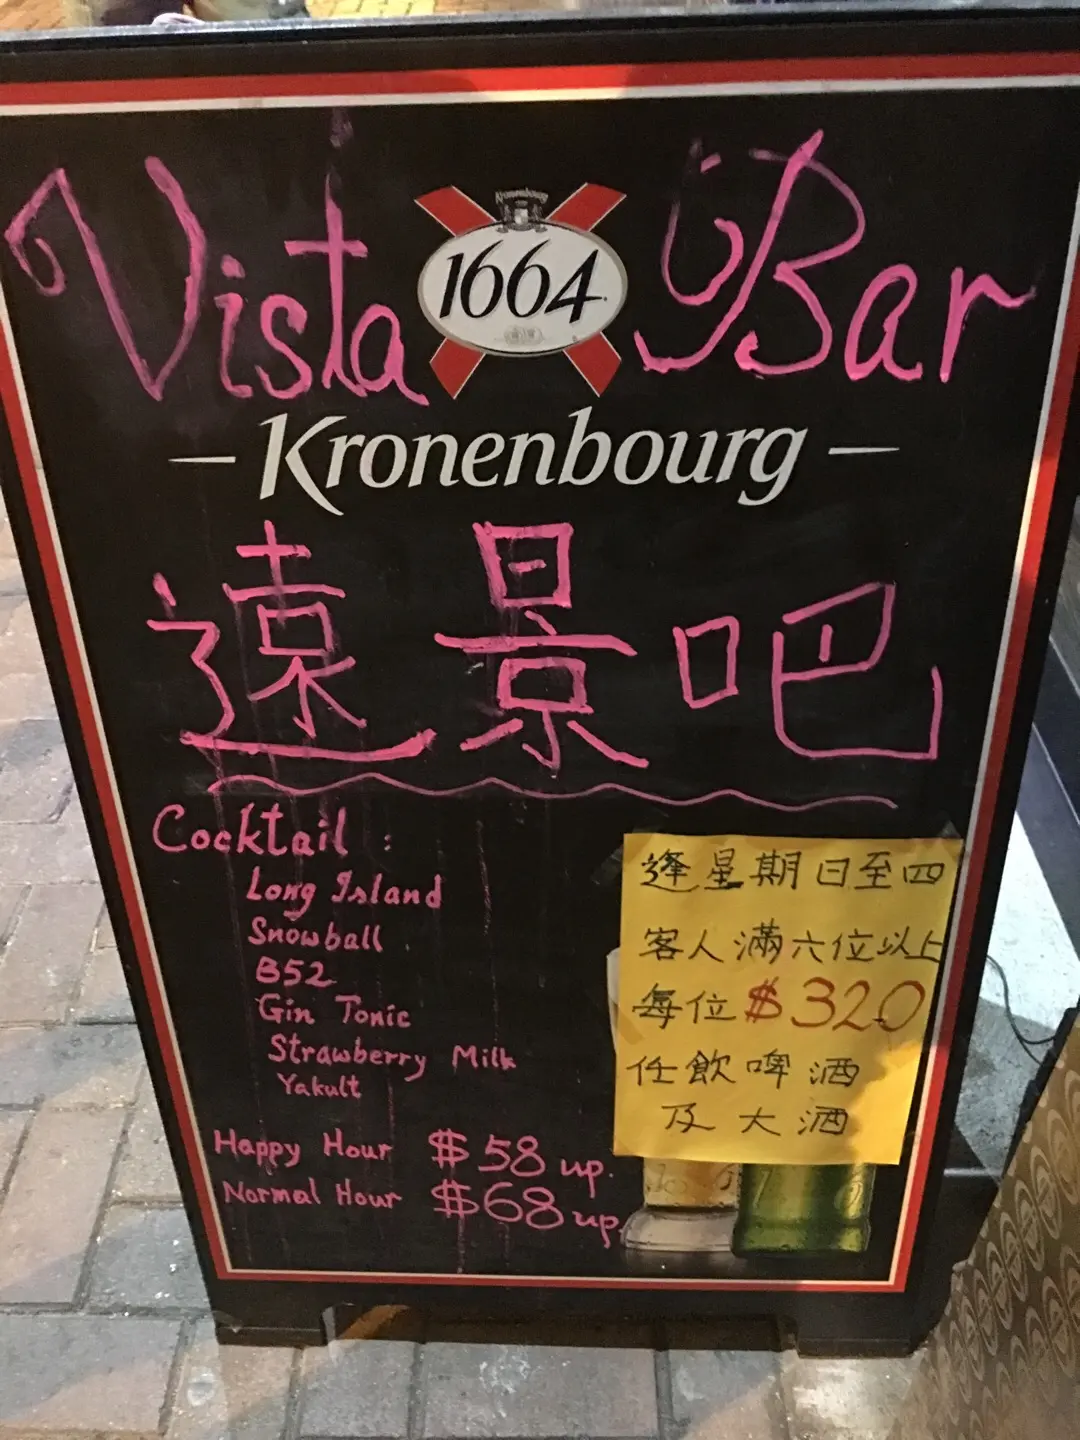 Vista Bar
Kronenbourg
1664
Kronenbourg
遠景吧
Cocktail :
Long Island
Snowball
B52
Gin Tonic
Strawberry Milk
Yakult
Happy Hour $58 up.
Normal Hour $68 up.
逢星期日至四
客人滿六位以上
每位 $320
任飲啤酒
及大酒